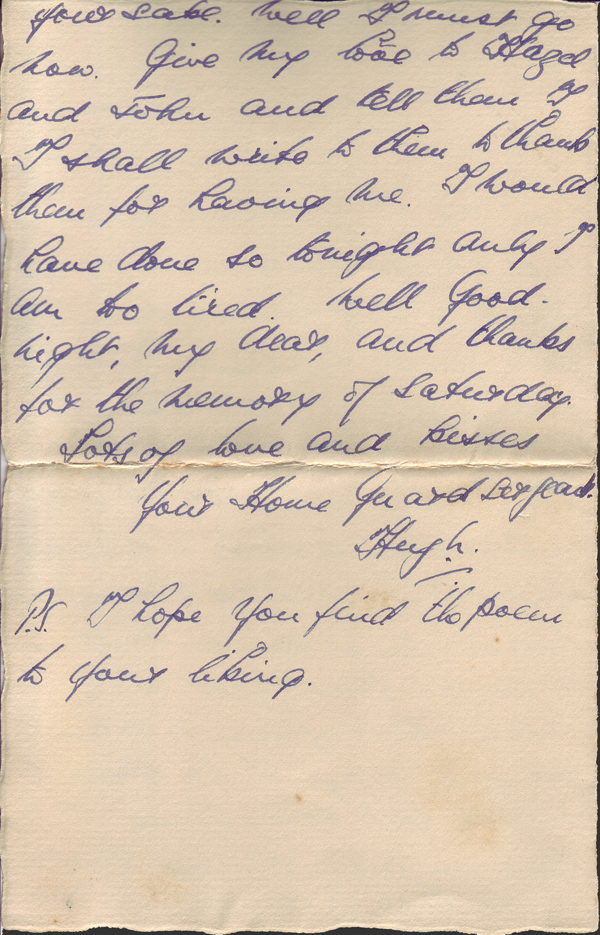 your sake. Well I must go
now. Give my love to Hazel
and John and tell them I
I shall write to them to thank
them for having me. I would
have done so tonight only I
am too tired. Well Good-
night, my dear, and thanks
for the memory of Saturday.
Lots of love and kisses
Your Home Guard Sergeant.
Hugh.
P.S. I hope you find the poem
to your liking.